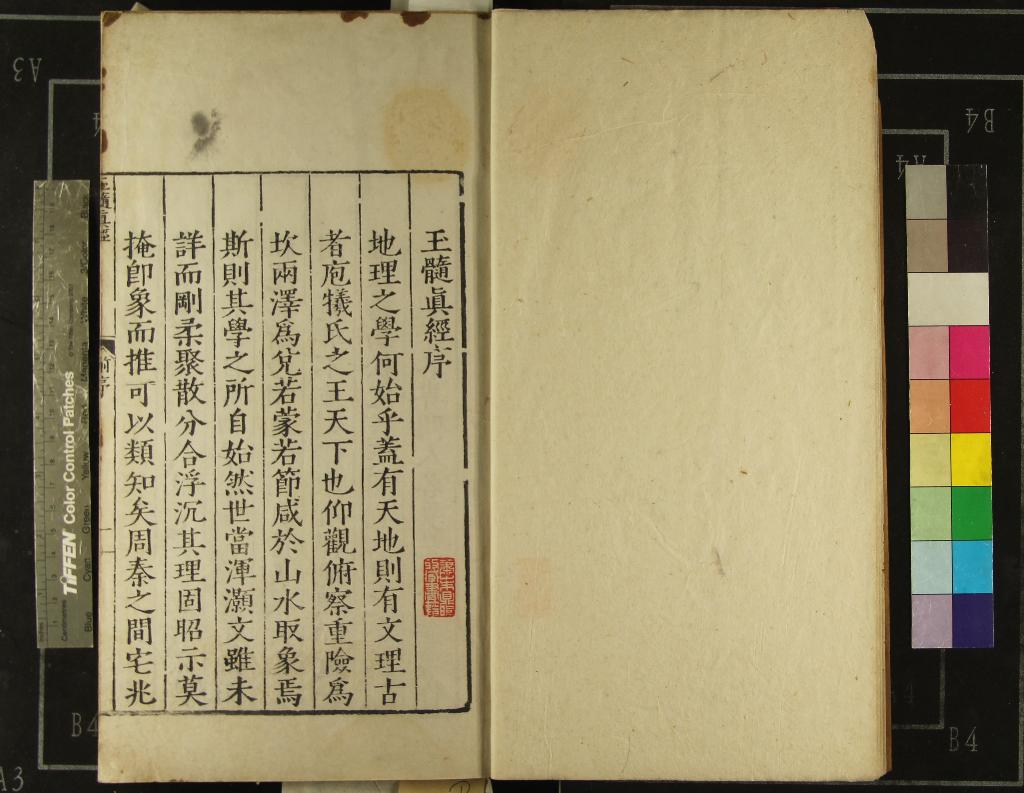 玉髓眞經序
地理之學何始乎蓋有天地則有文理古
者庖犧氏之王天下也仰觀俯察重險爲
坎兩澤爲兌若蒙若節咸於山水取象焉
斯則其學之所自始然世當渾灝文雖未
詳而剛柔聚散分合浮沉其理固昭示莫
掩卽象而推可以類知矣周秦之間宅兆
玉髓眞經
前序
TIFFEN Color Control Patches
A3
B4
A4
B4
B4
A3